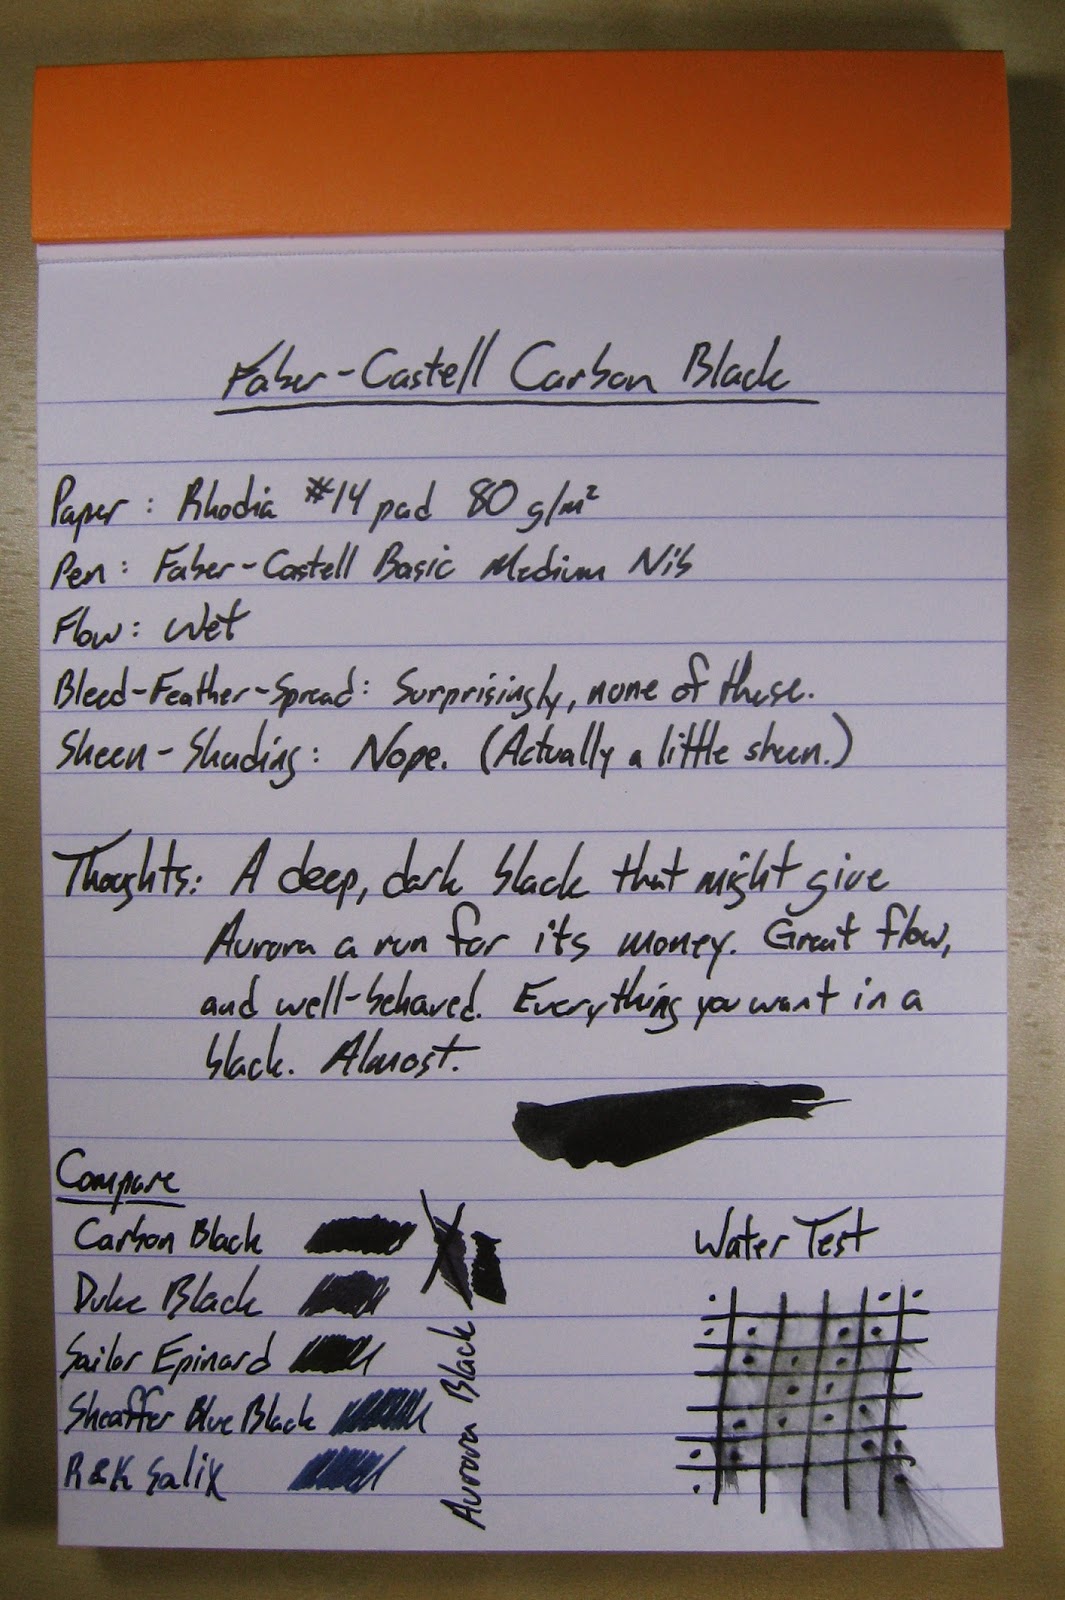 Faber-Castell Carbon Black
Paper: Rhodia #14 pad 80 g/m²
Pen: Faber-Castell Basic Medium Nib
Flow: Wet
Bleed-Feather-Spread: Surprisingly, none of these.
Sheen-Shading: Nope. (Actually a little sheen.)
Thoughts: A deep, dark black that might give
Aurora a run for its money. Great flow,
and well-behaved. Everything you want in a
black. Almost.
Compare
Carbon Black
Duke Black
Sailor Epinard
Sheaffer Blue Black
R&K Salix
Aurora Black
Water Test